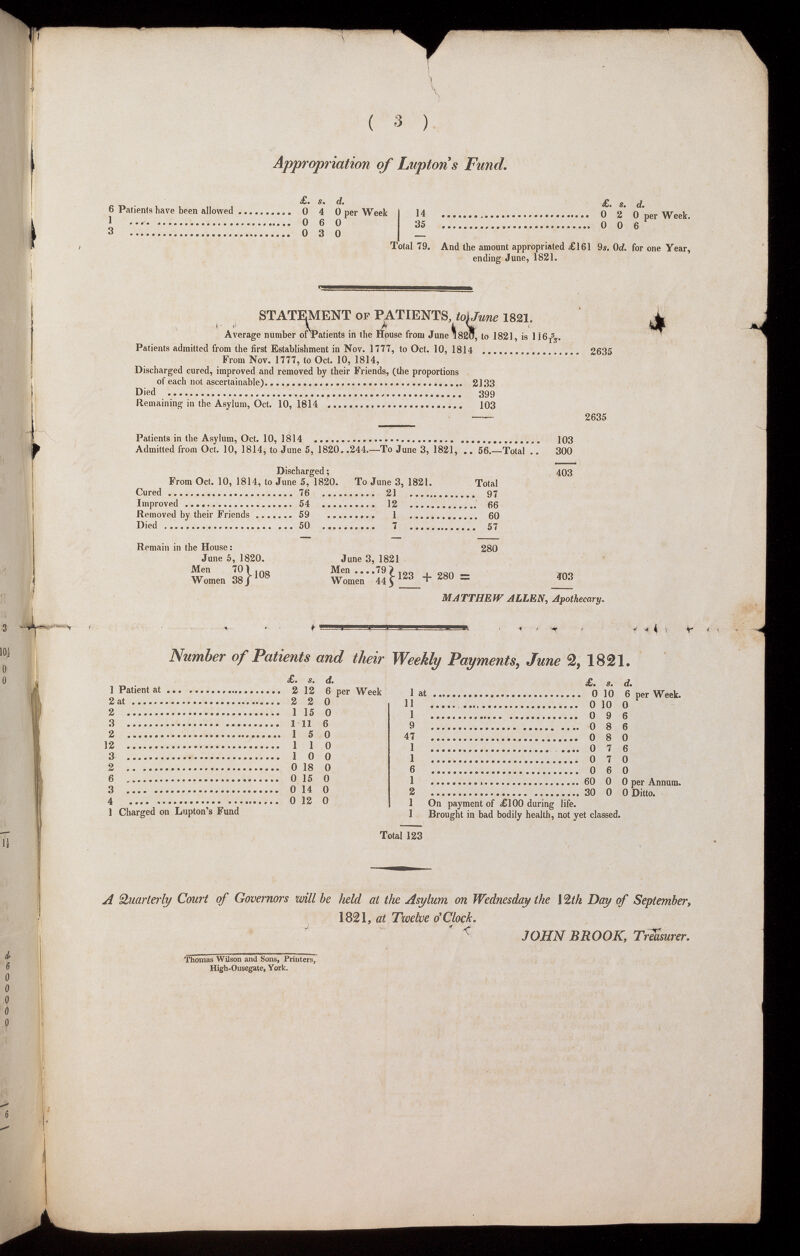 ( 3 )
Appropriation of Lupton's Fund.
£. s. d.
6 Patients have been allowed .......... 0 4 0 per Week
1 .... ........................ 0 6 0
3 ............................ 0 3 0
£. s. d.
14 ............................ 0 2 0 per Week.
35 ............................ 0 0 6
Total 79. And the amount appropriated £161 9s. 0d. for one Year,
ending June, 1821.
STATEMENT OF PATIENTS, to June 1821.
Average number of Patients in the House from June 1820, to 1821, is 116 5/13.
Patients admitted from the first Establishment in Nov. 1777, to Oct. 10, 1814 .................. 2635
From Nov. 1777, to Oct. 10, 1814,
Discharged cured, improved and removed by their Friends, (the proportions
of each not ascertainable).................................... 2133
Died .................................................... 399
Remaining in the Asylum, Oct. 10, 1814 ........................ 103
2635
Patients in the Asylum, Oct. 10, 1814 ........................................ 103
Admitted from Oct. 10, 1814, to June 5, 1820..244.—To June 3, 1821, .. 56.—Total .. 300
Discharged; 403
From Oct. 10, 1814, to June 5, 1820. To June 3, 1821. Total
Cured ...................... 76 .......... 21 ............ 97
Improved .................... 54 .......... 12 ............ 66
Removed by their Friends ....... 59 .......... 1 ............ 60
Died ...................... 50 .......... 7 ............ 57
Remain in the House: 280
June 5, 1820. June 3, 1821
Men 70 } 108 Men ....79 } 123 + 280 = 403
Women 38 Women 44
MATTHEW ALLEN, Apothecary.
Number of Patients and their Weekly Payments, June 2, 1821.
£. s. d.
1 Patient at ... ................ 2 12 6 per Week
2 at .......................... 2 2 0
2 ............................ 1 15 0
3 ............................ 1 11 6
2 ............................ 1 5 0
12 ............................ 1 1 0
3 ............................ 1 0 0
2 ............................ 0 18 0
6 ............................ 0 15 0
3 ............................ 0 14 0
4 ............................ 0 12 0
1 Charged on Lupton's Fund
£. s. d.
1 at ............................ 0 10 6 per Week.
11 ............................ 0 10 0
1 ............................ 0 9 6
9 ............................ 0 8 6
47 ............................ 0 8 0
1 ............................ 0 7 6
1 ............................ 0 7 0
6 ............................ 0 6 0
1 ............................ 60 0 0 per Annum.
2 ............................ 30 0 0 Ditto.
1 On payment of £100 during life.
1 Brought in bad bodily health, not yet classed.
Total 123
A Quarterly Court of Governors will be held at the Asylum on Wednesday the 12th Day of September,
1821, at Twelve o'Clock.
JOHN BROOK, Treasurer.
Thomas Wilson and Sons, Printers,
High-Ousegate, York.